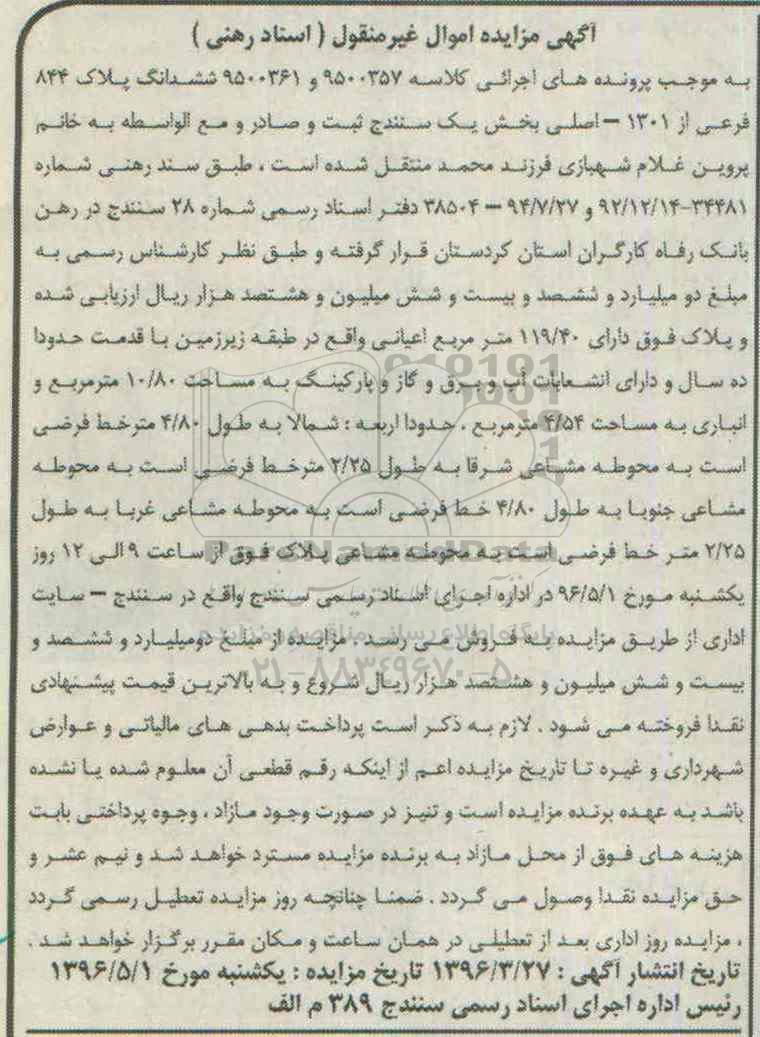 آگهی مزایده اموال غیرمنقول ( اسناد رهنی )
به موجب پرونده های اجرائی کلاسه ۹۵۰۰۳۵۷ و ۹۵۰۰۳۶۱ ششدانگ پلاک ۸۴۴
فرعی از ۱۳۰۱ – اصلی بخش یک سنندج ثبت و صادر و مع الواسطه به خانم
پروین غلام شهبازی فرزند محمد منتقل شده است ، طبق سند رهنی شماره
۳۴۴۸۱-۹۲/۱۲/۱۴ و ۹۴/۷/۲۷ – ۳۸۵۰۴ دفتر اسناد رسمی شماره ۲۸ سنندج در رهن
بانک رفاه کارگران استان کردستان قرار گرفته و طبق نظر کارشناس رسمی به
مبلغ دو میلیارد و ششصد و بیست و شش میلیون و هشتصد هزار ریال ارزیابی شده
و پلاک فوق دارای ۱۱۹/۴۰ متر مربع اعیانی واقع در طبقه زیرزمین با قدمت حدودا
ده سال و دارای انشعابات آب و برق و گاز و پارکینگ به مساحت ۱۰/۸۰ مترمربع و
انباری به مساحت ۴/۵۴ مترمربع . حدودا اربعه : شمالا به طول ۴/۸۰ مترخط فرضی
است به محوطه مشاعی شرقا به طول ۲/۲۵ مترخط فرضی است به محوطه
مشاعی جنوبا به طول ۴/۸۰ خط فرضی است به محوطه مشاعی غربا به طول
۲/۲۵ متر خط فرضی است به محوطه مشاعی پلاک فوق از ساعت ۹ الی ۱۲ روز
یکشنبه مورخ ۹۶/۵/۱ در اداره اجرای اسناد رسمی سنندج واقع در سنندج – سایت
اداری از طریق مزایده به فروش می رسد . مزایده از مبلغ دومیلیارد و ششصد و
بیست و شش میلیون و هشتصد هزار ریال شروع و به بالاترین قیمت پیشنهادی
نقدا فروخته می شود . لازم به ذکر است پرداخت بدهی های مالیاتی و عوارض
شهرداری و غیره تا تاریخ مزایده اعم از اینکه رقم قطعی آن معلوم شده یا نشده
باشد به عهده برنده مزایده است و تنیز در صورت وجود مازاد ، وجوه پرداختی بابت
هزینه های فوق از محل مازاد به برنده مزایده مسترد خواهد شد و نیم عشر و
حق مزایده نقدا وصول می گردد . ضمنا چنانچه روز مزایده تعطیل رسمی گردد
، مزایده روز اداری بعد از تعطیلی در همان ساعت و مکان مقرر برگزار خواهد شد .
تاریخ انتشار آگهی : ۱۳۹۶/۳/۲۷ تاریخ مزایده : یکشنبه مورخ ۱۳۹۶/۵/۱
رئیس اداره اجرای اسناد رسمی سنندج ۳۸۹ م الف
ParsNamadData
پایگاه اطلاع رسانی مناقصه و مزایده
۰۲۱-۸۸۳۴۹۶۷۰-۵